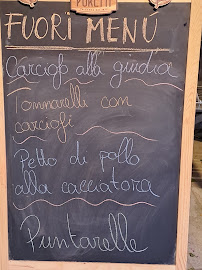 PORETTI
FUORI MENÚ
Carciofi alla giudia
Tonnarelli con
carciofi
Petto di pollo
alla cacciatora
Puntarelle